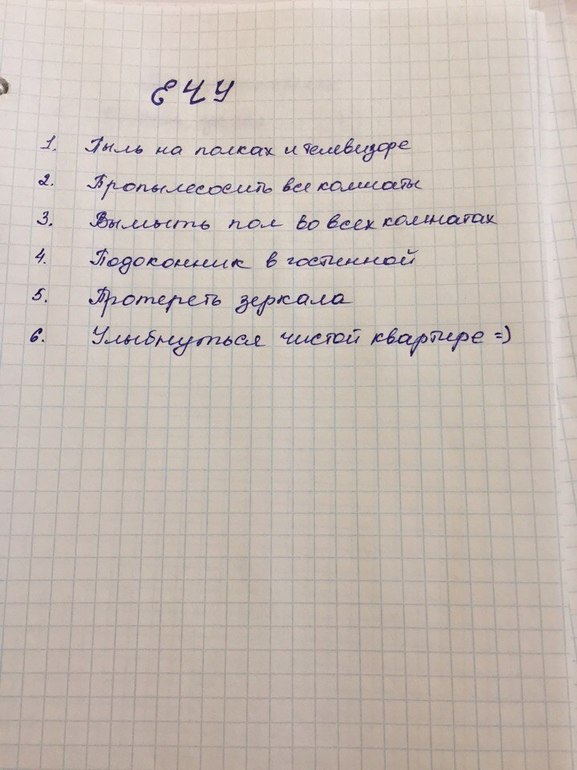 ЕЧУ
1. Пыль на полках и телевизоре
2. Пропылесосить все комнаты
3. Вымыть пол во всех комнатах
4. Подоконник в гостинной
5. Протереть зеркала
6. Улыбнуться чистой квартире =)